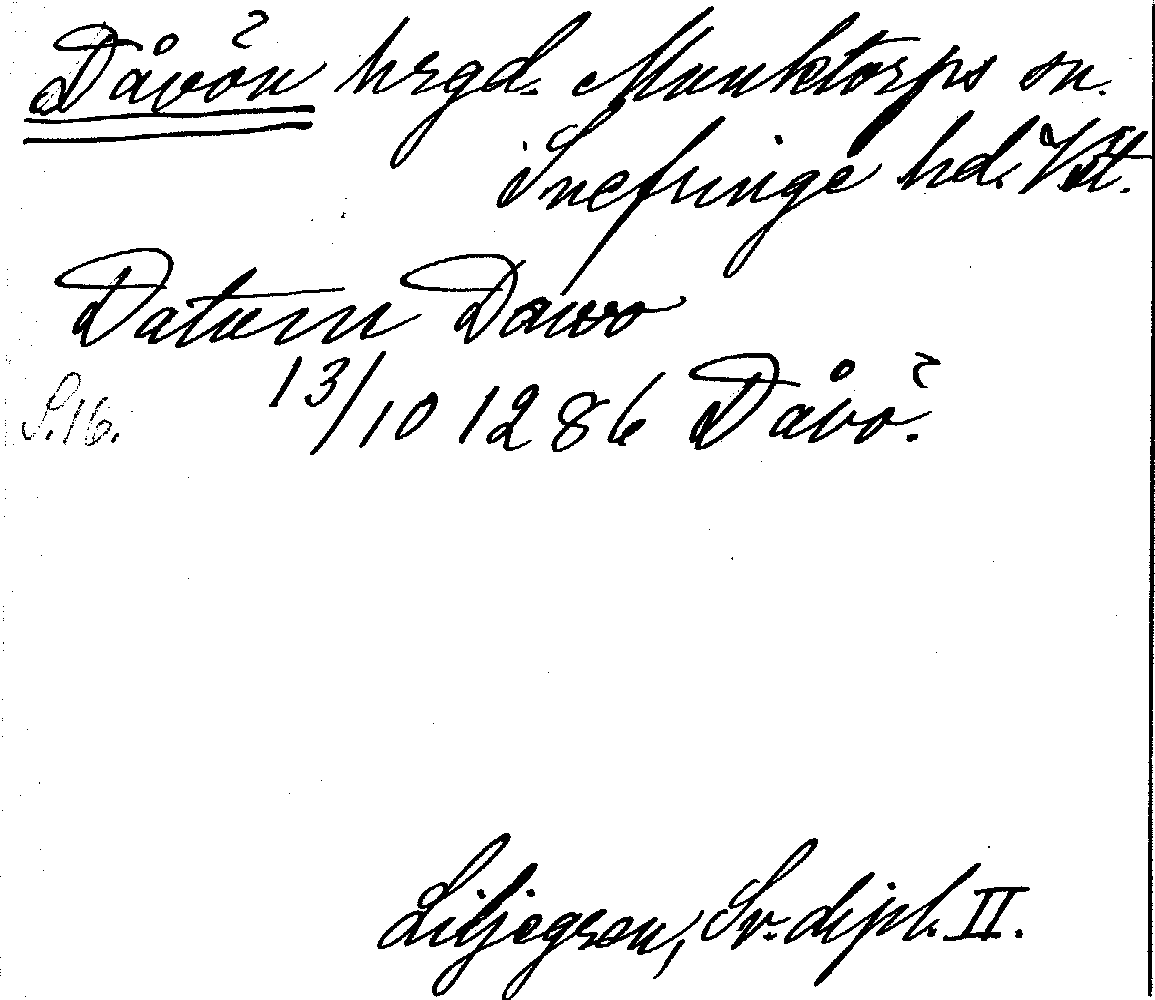 Dåvön hrgd. Munktorps sn.
Snefringe hd. Vstl.
Datum Dawo
S. 16. 13/10 1286 Dåvö.
Liljegren, Sv. dipl. II.